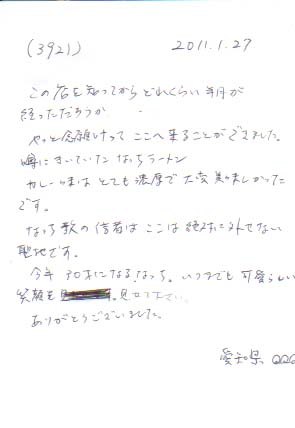 (3921) 2011.1.27
この店を知ってからどれくらい年月が
経っただろうか
やっと念願叶って ここへ来ることができました。
噂にきいていた なっちラートン
カレー味は とても濃厚で大変美味しかった
です。
なっち教の信者は ここは絶対に外せない
聖地です。
今年 30才になる なっち。いつまでも 可愛らしい
笑顔を 見せて下さい。
ありがとうございました。
愛知県